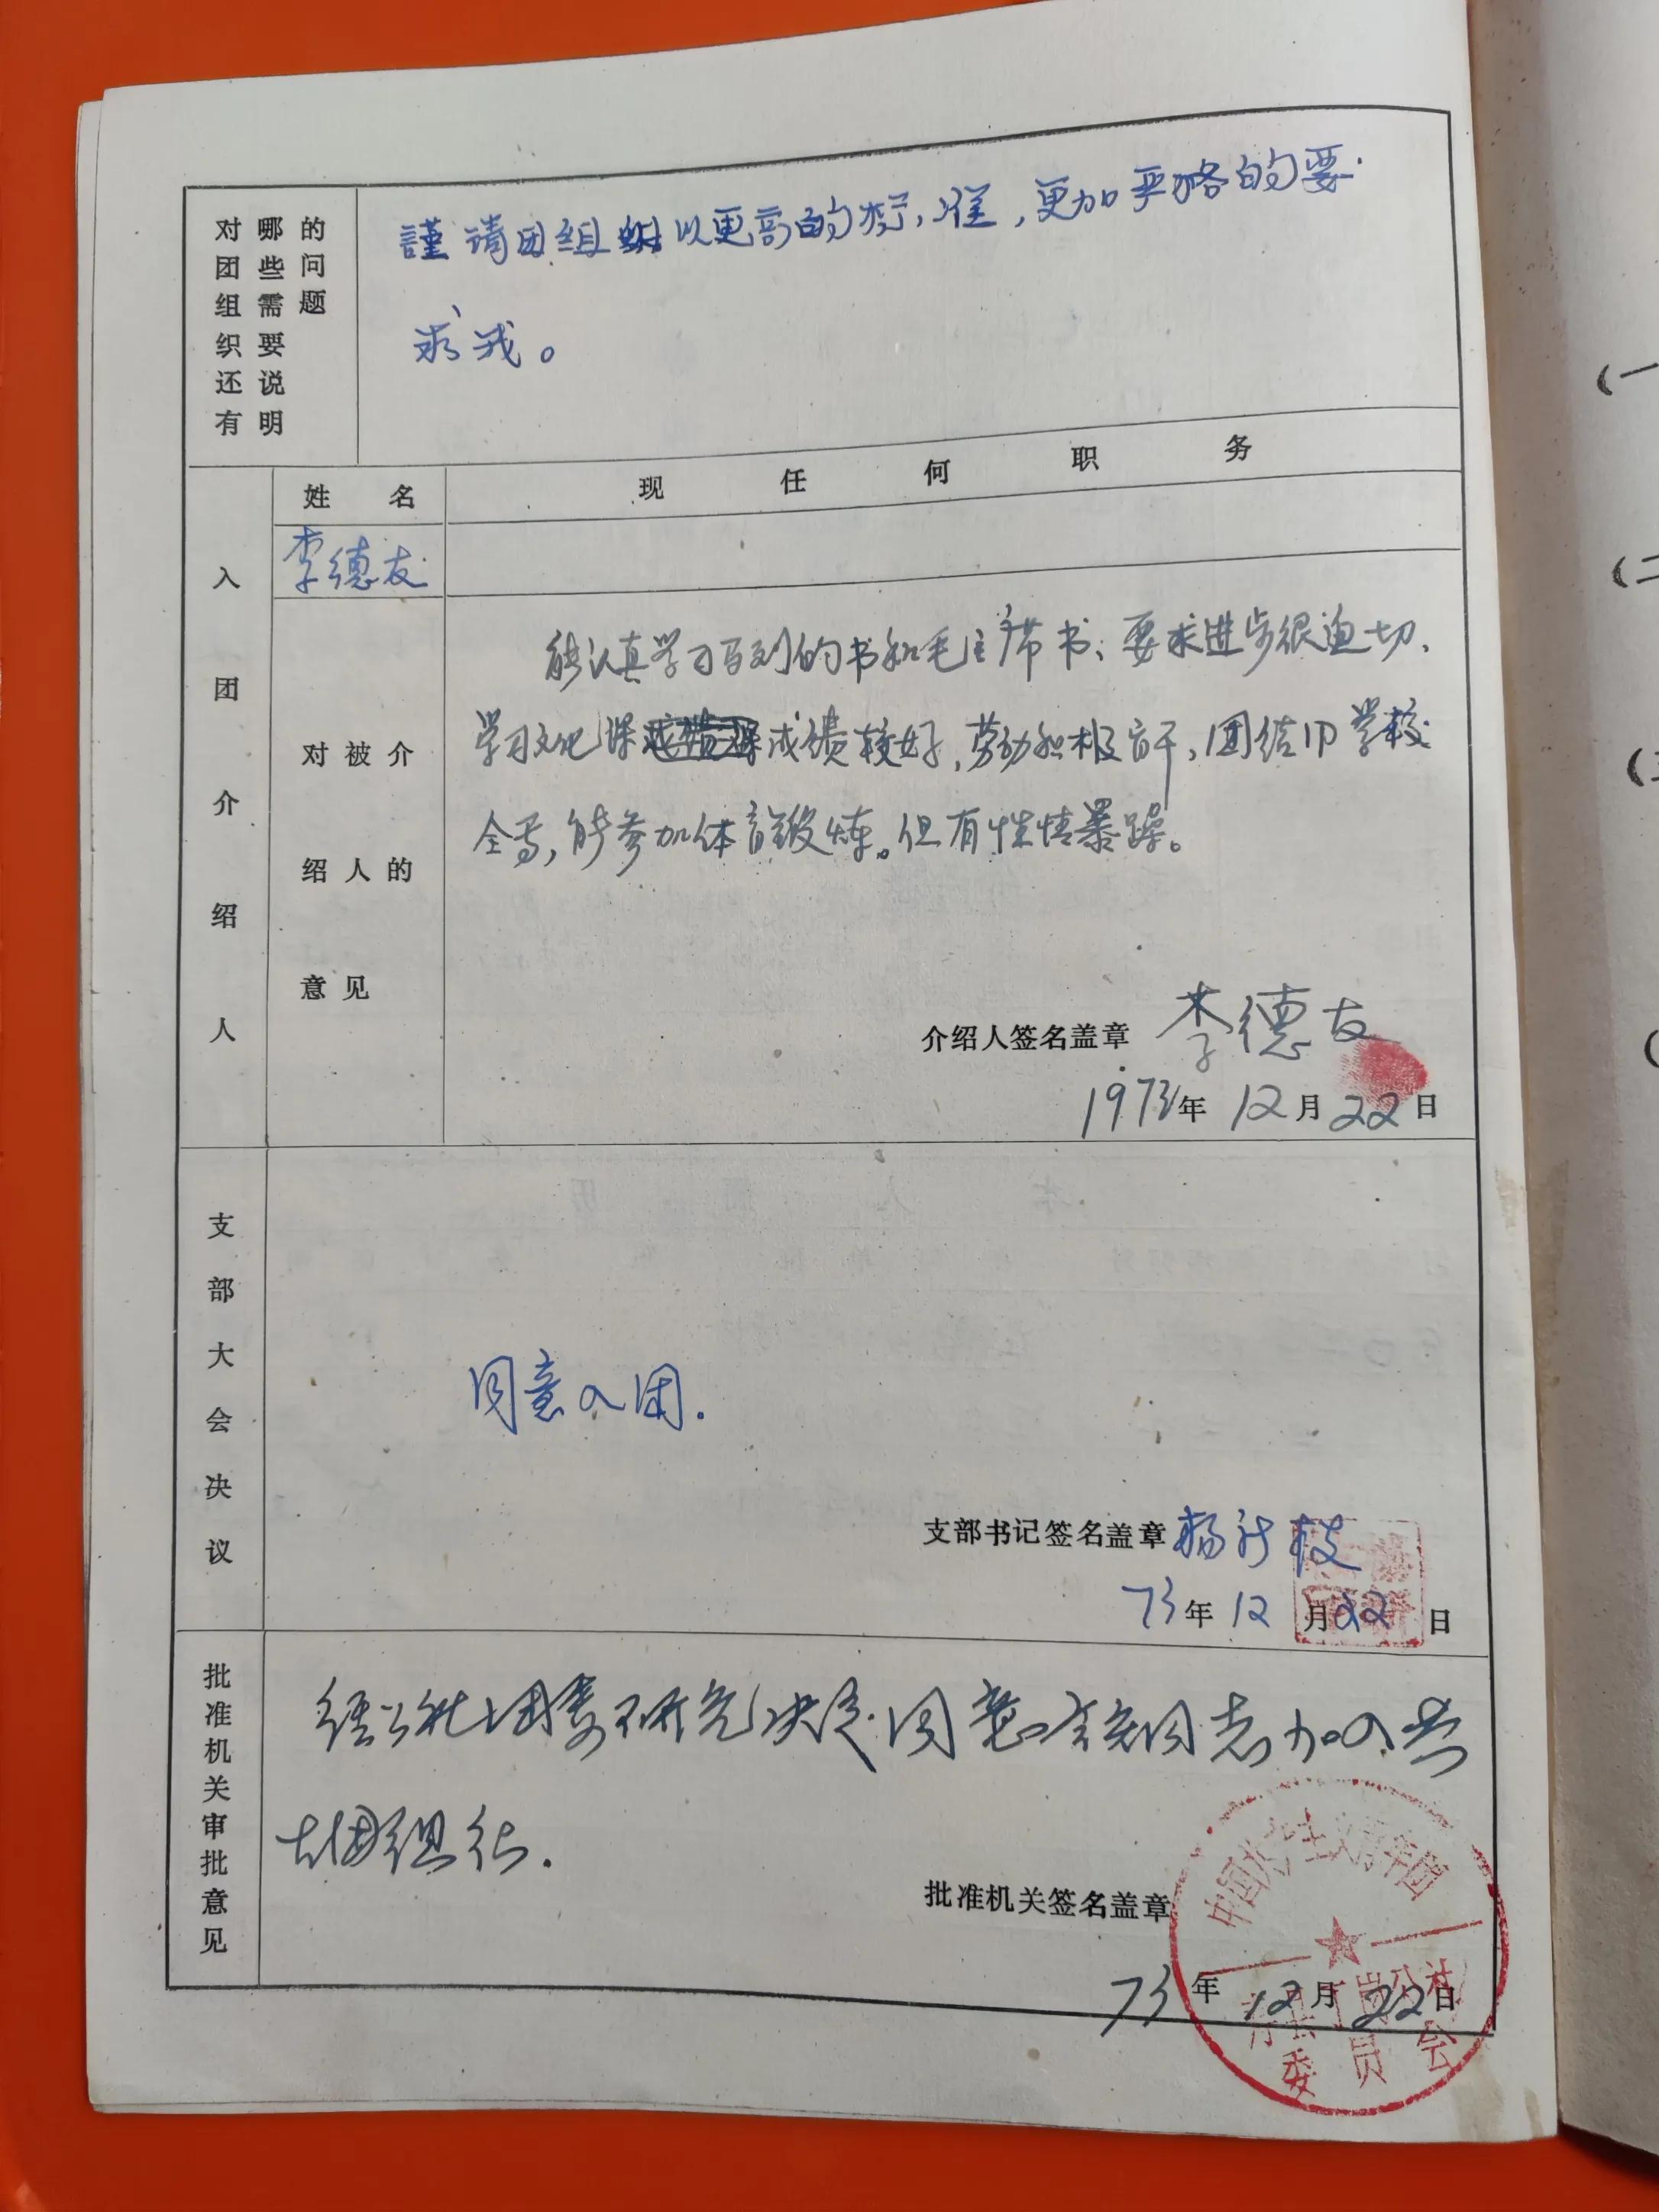 对团组织还有
哪些需要说明
的问题
謹请团组织以更高的标准，更加严格的要
求我。
入团介绍人
姓名
现任何职务
李德友
对被介
绍人的
意见
能认真学习马列的书和毛主席书、要求进步很迫切.
学习文化课成绩较好，劳动积极肯干，团结
全面，能参加体育锻炼。但有性情暴躁。
介绍人签名盖章 李德友
1973年12月22日
支部大会决议
同意入团.
支部书记签名盖章 杨新枝
73年12月22日
批准机关审批意见
经公社团委研究决定同意 同志加入共
团组织.
批准机关签名盖章
73年12月22日
中国共产主义青年团
公社
委员会
(一
(二